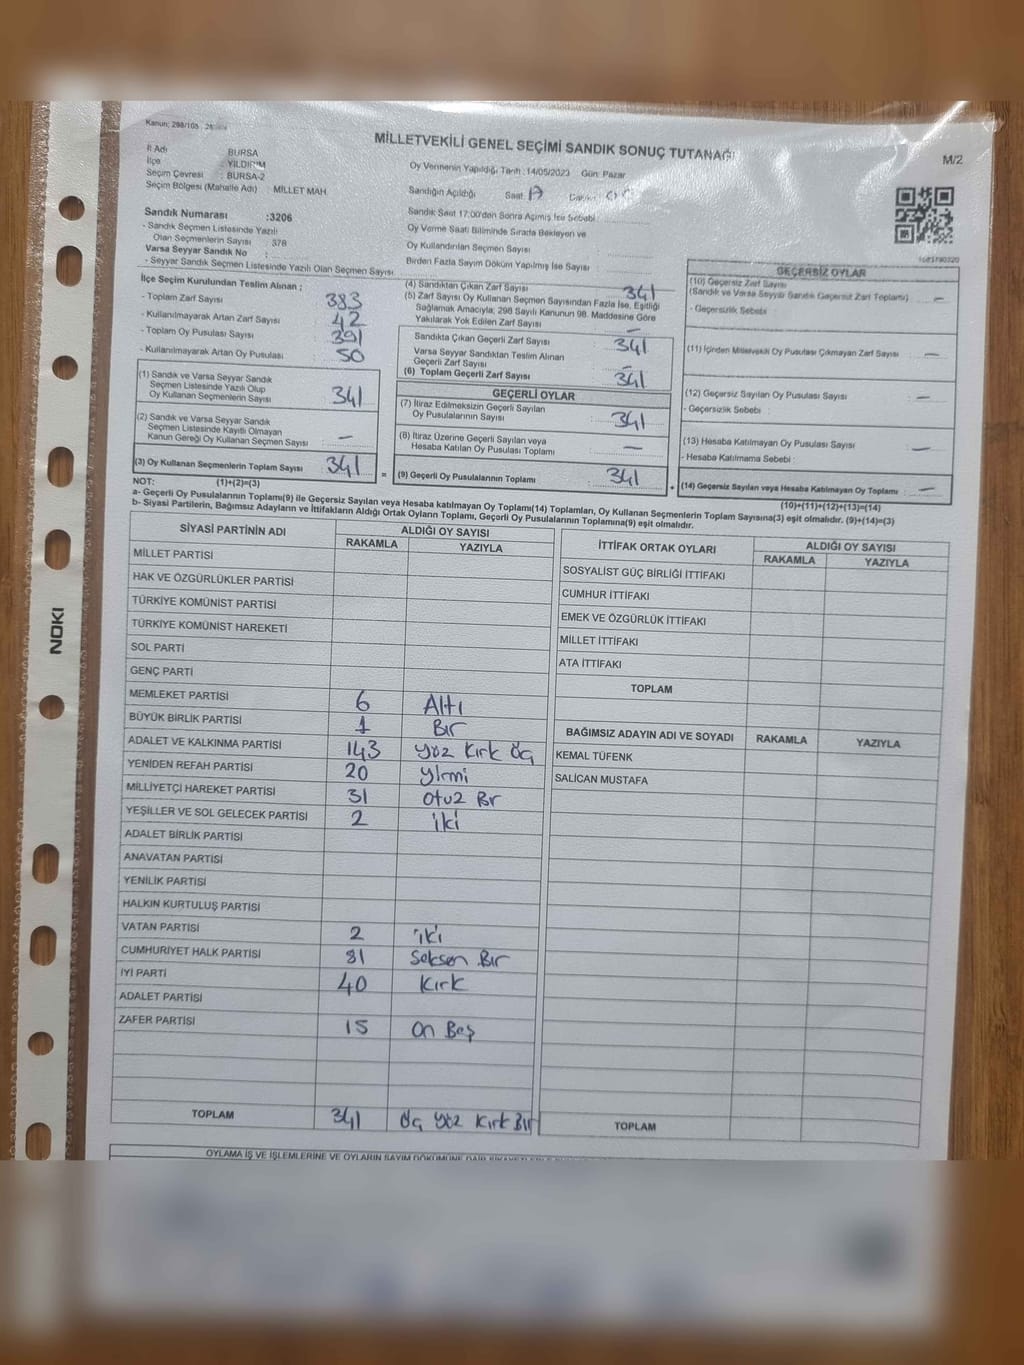 Kanun: 298/105
MİLLETVEKİLİ GENEL SEÇİMİ SANDIK SONUÇ TUTANAĞI
M/2
İl Adı : BURSA
İlçe : YILDIRIM
Seçim Çevresi : BURSA-2
Seçim Bölgesi (Mahalle Adı) : MİLLET MAH.
Oy Vermenin Yapıldığı Tarih : 14/05/2023 Gün: Pazar
Sandığın Açıldığı Saat
Sandık Saat 17:00'den Sonra Açılmış İse Sebebi
Oy Verme Saati Bitiminde Sırada Bekleyen ve
Oy Kullandırılan Seçmen Sayısı
Birden Fazla Sayım Döküm Yapılmış İse Sayısı
Sandık Numarası :3206
- Sandık Seçmen Listesinde Yazılı
Olan Seçmenlerin Sayısı : 378
Varsa Seyyar Sandık No :
- Seyyar Sandık Seçmen Listesinde Yazılı Olan Seçmen Sayısı
İlçe Seçim Kurulundan Teslim Alınan ;
- Toplam Zarf Sayısı : 383
- Kullanılmayarak Artan Zarf Sayısı : 42
- Toplam Oy Pusulası Sayısı : 391
- Kullanılmayarak Artan Oy Pusulası : 50
(1) Sandık ve Varsa Seyyar Sandık
Seçmen Listesinde Yazılı Olup
Oy Kullanan Seçmenlerin Sayısı : 341
(2) Sandık ve Varsa Seyyar Sandık
Seçmen Listesinde Kayıtlı Olmayan
Kanun Gereği Oy Kullanan Seçmen Sayısı : —
(3) Oy Kullanan Seçmenlerin Toplam Sayısı : 341
(4) Sandıktan Çıkan Zarf Sayısı : 341
(5) Zarf Sayısı Oy Kullanan Seçmen Sayısından Fazla İse, Eşitliği
Sağlamak Amacıyla, 298 Sayılı Kanunun 98. Maddesine Göre
Yakılarak Yok Edilen Zarf Sayısı : —
Sandıkta Çıkan Geçerli Zarf Sayısı : 341
Varsa Seyyar Sandıktan Teslim Alınan
Geçerli Zarf Sayısı : —
(6) Toplam Geçerli Zarf Sayısı : 341
GEÇERLİ OYLAR
(7) İtiraz Edilmeksizin Geçerli Sayılan
Oy Pusulalarının Sayısı : 341
(8) İtiraz Üzerine Geçerli Sayılan veya
Hesaba Katılan Oy Pusulası Toplamı : —
= (9) Geçerli Oy Pusulalarının Toplamı : 341
GEÇERSİZ OYLAR
(10) Geçersiz Zarf Sayısı
(Sandık ve Varsa Seyyar Sandık Geçersiz Zarf Toplamı) : —
- Geçersizlik Sebebi :
(11) İçinden Milletvekili Oy Pusulası Çıkmayan Zarf Sayısı : —
(12) Geçersiz Sayılan Oy Pusulası Sayısı : —
- Geçersizlik Sebebi :
(13) Hesaba Katılmayan Oy Pusulası Sayısı : —
- Hesaba Katılmama Sebebi :
+ (14) Geçersiz Sayılan veya Hesaba Katılmayan Oy Toplamı : —
NOT: (1)+(2)=(3)
(10)+(11)+(12)+(13)=(14)
a- Geçerli Oy Pusulalarının Toplamı(9) ile Geçersiz Sayılan veya Hesaba katılmayan Oy Toplamı(14) Toplamları, Oy Kullanan Seçmenlerin Toplam Sayısına(3) eşit olmalıdır. (9)+(14)=(3)
b- Siyasi Partilerin, Bağımsız Adayların ve İttifakların Aldığı Ortak Oyların Toplamı, Geçerli Oy Pusulalarının Toplamına(9) eşit olmalıdır.
SİYASİ PARTİNİN ADI ALDIĞI OY SAYISI
RAKAMLA YAZIYLA
MİLLET PARTİSİ
HAK VE ÖZGÜRLÜKLER PARTİSİ
TÜRKİYE KOMÜNİST PARTİSİ
TÜRKİYE KOMÜNİST HAREKETİ
SOL PARTİ
GENÇ PARTİ
MEMLEKET PARTİSİ 6 Altı
BÜYÜK BİRLİK PARTİSİ 1 Bir
ADALET VE KALKINMA PARTİSİ 143 yüz kırk üç
YENİDEN REFAH PARTİSİ 20 yirmi
MİLLİYETÇİ HAREKET PARTİSİ 31 otuz Bir
YEŞİLLER VE SOL GELECEK PARTİSİ 2 iki
ADALET BİRLİK PARTİSİ
ANAVATAN PARTİSİ
YENİLİK PARTİSİ
HALKIN KURTULUŞ PARTİSİ
VATAN PARTİSİ 2 iki
CUMHURİYET HALK PARTİSİ 81 Seksen Bir
İYİ PARTİ 40 Kırk
ADALET PARTİSİ
ZAFER PARTİSİ 15 On Beş
TOPLAM 341 Üç yüz Kırk Bir
İTTİFAK ORTAK OYLARI ALDIĞI OY SAYISI
RAKAMLA YAZIYLA
SOSYALİST GÜÇ BİRLİĞİ İTTİFAKI
CUMHUR İTTİFAKI
EMEK VE ÖZGÜRLÜK İTTİFAKI
MİLLET İTTİFAKI
ATA İTTİFAKI
TOPLAM
BAĞIMSIZ ADAYIN ADI VE SOYADI RAKAMLA YAZIYLA
KEMAL TÜFENK
SALİCAN MUSTAFA
TOPLAM
NOKI